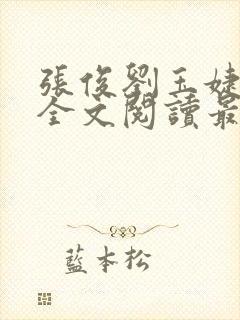 張俊劉玉婕
全文閱讀最
藍本松